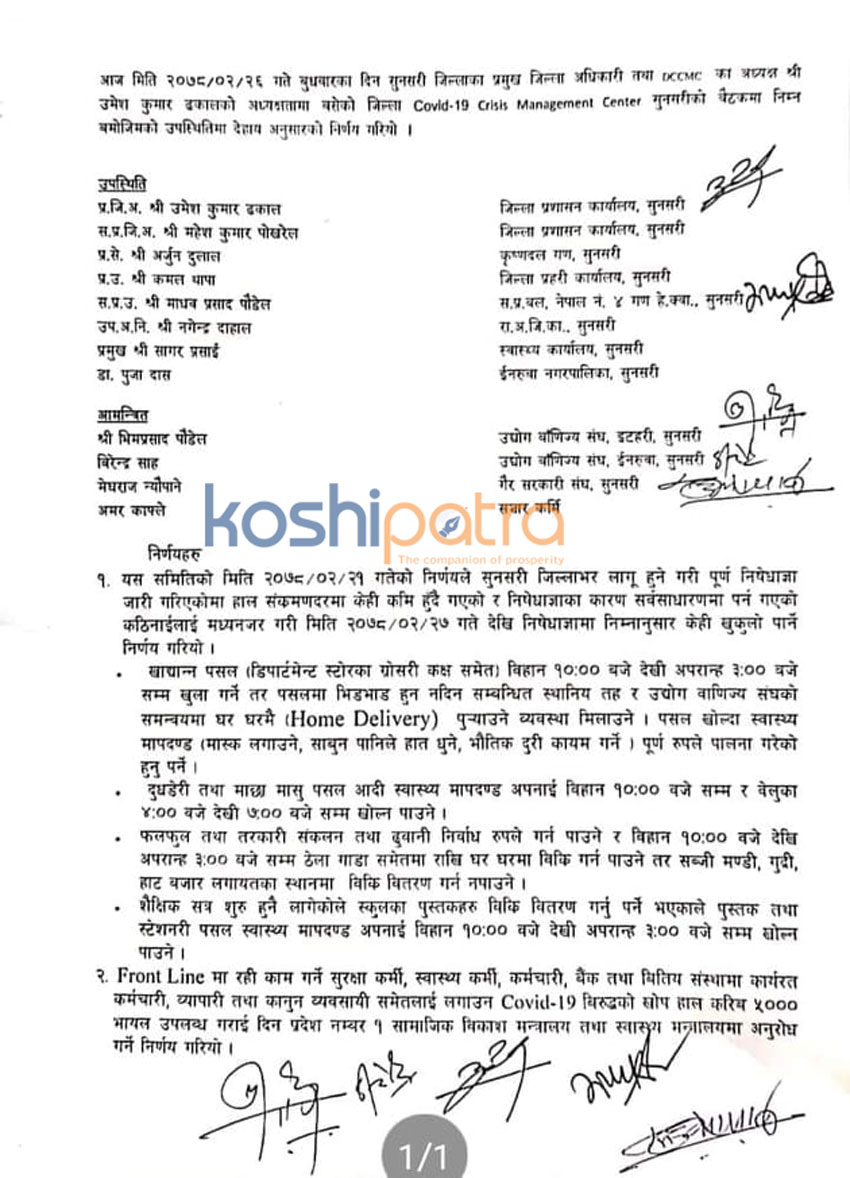 आज मिति २०७८/०२/२६ गते बुधबारका दिन सुनसरी जिल्लाका प्रमुख जिल्ला अधिकारी तथा DCCMC का अध्यक्ष श्री
उमेश कुमार ढकालको अध्यक्षतामा बसेको जिल्ला Covid-19 Crisis Management Center सुनसरीको बैठकमा निम्न
बमोजिमको उपस्थितिमा देहाय अनुसारको निर्णय गरियो ।
उपस्थिति
प्र.जि.अ. श्री उमेश कुमार ढकाल जिल्ला प्रशासन कार्यालय, सुनसरी
स.प्र.जि.अ. श्री महेश कुमार पोखरेल जिल्ला प्रशासन कार्यालय, सुनसरी
प्र.से. श्री अर्जुन दुलाल कृष्णदल गण, सुनसरी
प्र.उ. श्री कमल थापा जिल्ला प्रहरी कार्यालय, सुनसरी
स.प्र.उ. श्री माधव प्रसाद पौडेल स.प्र.बल, नेपाल नं. ४ गण हे.क्वा., सुनसरी
उप.अ.नि. श्री नगेन्द्र दाहाल रा.अ.जि.का., सुनसरी
प्रमुख श्री सागर प्रसाई स्वास्थ्य कार्यालय, सुनसरी
डा. पुजा दास ईनरुवा नगरपालिका, सुनसरी
आमन्त्रित
श्री भिमप्रसाद पौडेल उद्योग वाणिज्य संघ, इटहरी, सुनसरी
बिरेन्द्र साह उद्योग वाणिज्य संघ, ईनरुवा, सुनसरी
मेघराज न्यौपाने गैर सरकारी संघ, सुनसरी
अमर काफ्ले सञ्चार कर्मि
koshipatra
The companion of prosperity
निर्णयहरु
१. यस समितिको मिति २०७८/०२/२१ गतेको निर्णयले सुनसरी जिल्लाभर लागू हुने गरी पूर्ण निषेधाज्ञा
जारी गरिएकोमा हाल संक्रमणदरमा केही कमि हुँदै गएको र निषेधाज्ञाका कारण सर्वसाधारणमा पर्न गएको
कठिनाईलाई मध्यनजर गरी मिति २०७८/०२/२७ गते देखि निषेधाज्ञामा निम्नानुसार केही खुकुलो पार्ने
निर्णय गरियो ।
• खाद्यान्न पसल (डिपार्टमेन्ट स्टोरका ग्रोसरी कक्ष समेत) विहान १०:०० बजे देखी अपरान्ह ३:०० बजे
सम्म खुला गर्ने तर पसलमा भिडभाड हुन नदिन सम्बन्धित स्थानिय तह र उद्योग वाणिज्य संघको
समन्वयमा घर घरमै (Home Delivery) पुर्‍याउने व्यवस्था मिलाउने । पसल खोल्दा स्वास्थ्य
मापदण्ड (मास्क लगाउने, साबुन पानिले हात धुने, भौतिक दुरी कायम गर्ने ) पूर्ण रुपले पालना गरेको
हुनु पर्ने ।
• दुधडेरी तथा माछा मासु पसल आदी स्वास्थ्य मापदण्ड अपनाई विहान १०:०० बजे सम्म र वेलुका
४:०० बजे देखी ७:०० बजे सम्म खोल्न पाउने ।
• फलफुल तथा तरकारी संकलन तथा ढुवानी निर्वाध रुपले गर्न पाउने र विहान १०:०० बजे देखि
अपरान्ह ३:०० बजे सम्म ठेला गाडा समेतमा राखि घर घरमा विक्रि गर्न पाउने तर सब्जी मण्डी, गुद्री,
हाट बजार लगायतका स्थानमा विक्रि वितरण गर्न नपाउने ।
• शैक्षिक सत्र शुरु हुनै लागेकोले स्कुलका पुस्तकहरु विक्रि वितरण गर्नु पर्ने भएकाले पुस्तक तथा
स्टेशनरी पसल स्वास्थ्य मापदण्ड अपनाई विहान १०:०० बजे देखी अपरान्ह ३:०० बजे सम्म खोल्न
पाउने ।
२. Front Line मा रही काम गर्ने सुरक्षा कर्मी, स्वास्थ्य कर्मी, कर्मचारी, बैंक तथा वितिय संस्थामा कार्यरत
कर्मचारी, व्यापारी तथा कानुन व्यवसायी समेतलाई लगाउन Covid-19 विरुद्धको खोप हाल करिब ५०००
भायल उपलब्ध गराई दिन प्रदेश नम्बर १ सामाजिक विकाश मन्त्रालय तथा स्वास्थ्य मन्त्रालयमा अनुरोध
गर्ने निर्णय गरियो ।
1/1